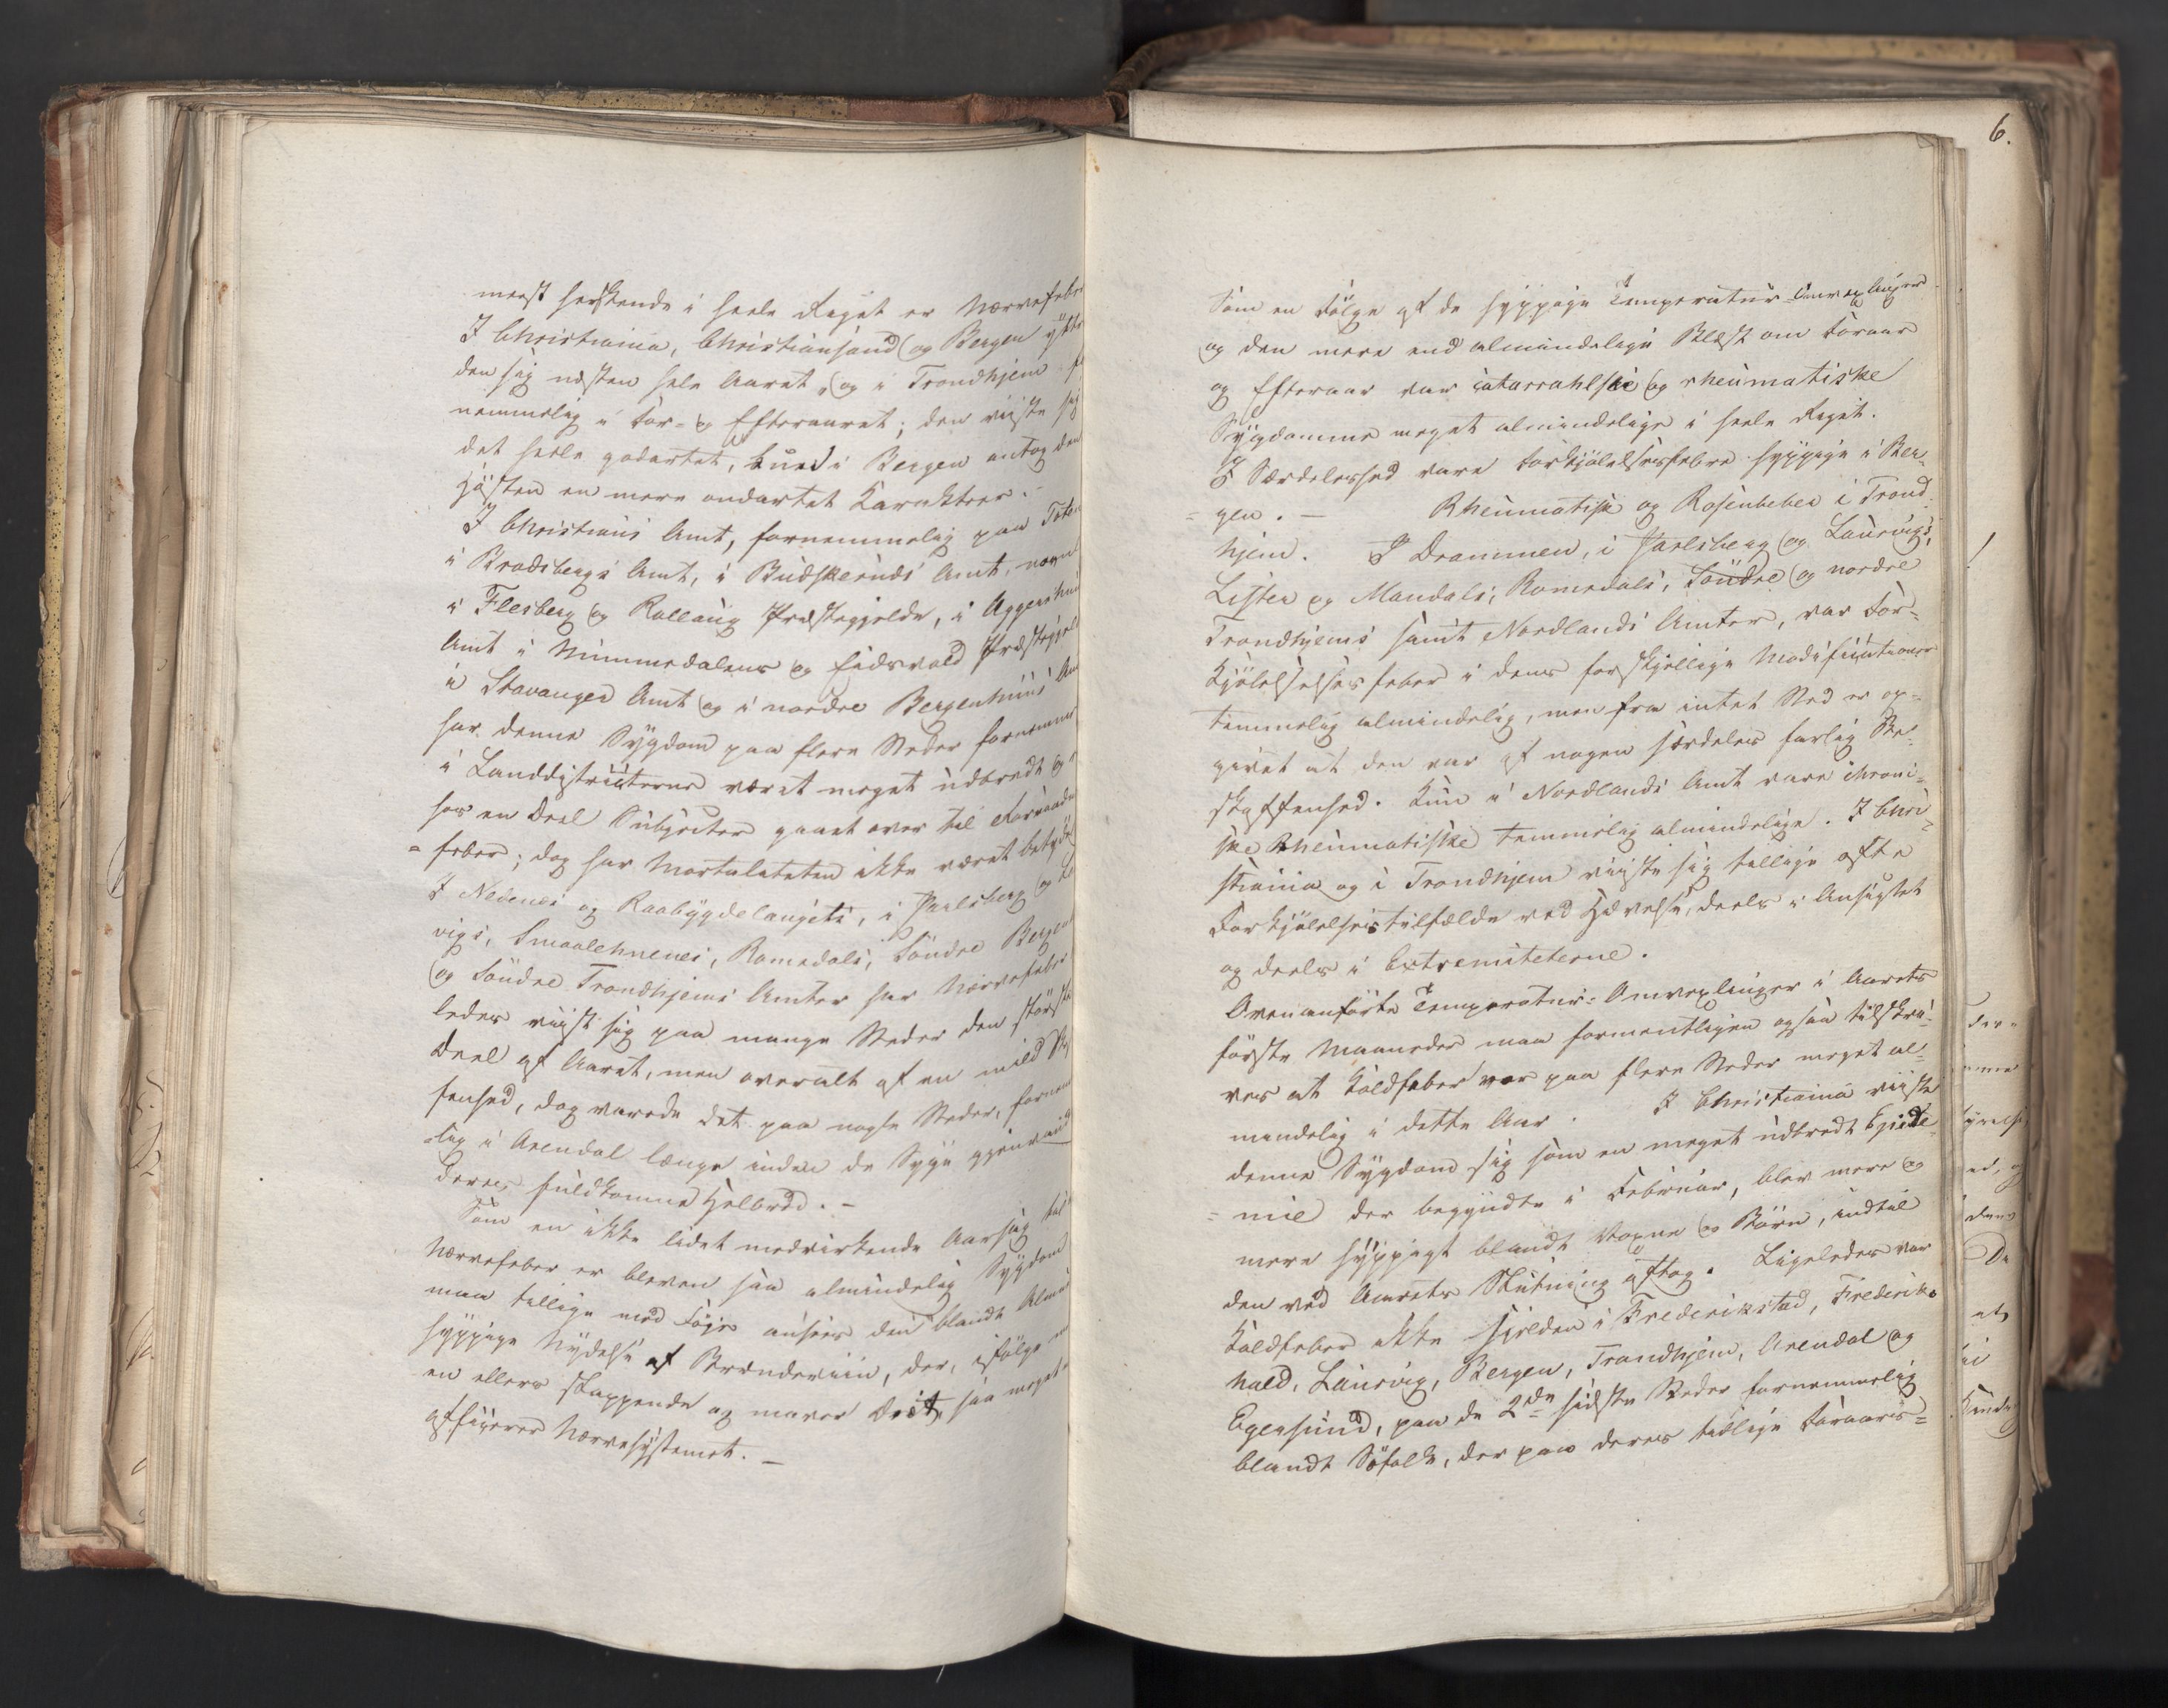 meest herskende i heele Riget er Nervefeber
I Christiania, Christiansand og Bergen yttre
den sig næsten hele Aaret, og i Trondhjem
nemmelig i For- og Efteraaret; den viiste sig
det heele godartet, kun i Bergen antog den
Høsten en mere ondartet Karakteer.
I Christians Amt, fornemmelig paa Toten
i Bradsbergs Amt, i Budskeruds Amt,
i Flesberg og Rollaug Præstegjelde, i Aggershuus
Amt i Nummedalens og Eidsvold Præstegjeld
i Stavanger Amt og i nordre Bergenhuus Am
har denne Sygdom paa flere Steder fornemme
i Landdistricterne været meget udbredt og
hos en Deel Subjecter gaaet over til Forraadn
= feber; dog har Mortaliteten ikke været betyde
I Nedenes og Raabygdelaugets, i Jarlsberg og L
vigs, Smaalehnenes, Romsdals, Søndre Bergen
og Søndre Trondhjems Amter har Nervefeber
ledes viist sig paa mange Steder den største
Deel af Aaret, men overalt af en mild
fenhed, dog varede det paa nogle Steder, fornem
-lig i Arendal længe inden de Syge gjenvand
deres fuldkomne Helbred. –
Som en ikke lidet medvirkende Aarsag til
Nervefeber er bleven saa almindelig Sygdom
maa tillige med Føje ansees den blandt Almu
hyppige Nydelse af Brændeviin, der, ifølge
en ellers slappende og maver Diæt, saa meget
afficerer Nervesystemet. –
6.
Som en Følge af de hyppige Temperatur-Omvexlinger
og den mere end almindelige Blæst om Foraar
og Efteraar var catarrahlske og rheumatiske
Sygdomme meget almindelige i heele Riget.
I Særdeleshed vare Forkjølelsesfebre hyppige i Ber-
= gen. – Rheumatisk og Rosenfeber i Trond-
hjem. I Drammen, i Jarlsberg og Laurvigs,
Lister og Mandals, Romsdals, Søndre og nordre
Trondhjems samt Nordlands Amter, var For-
kjølelsesfeber i dens forskjellige Modificationer
temmelig almindelig, men fra intet Sted er op-
givet at den var af nogen særdeles farlig Be-
skaffenhed. Kun i Nordlands Amt vare chroni-
ske Rheumatiske temmelig almindelige. I Chri-
stiania og i Trondhjem viiste sig tillige ofte
Forkjølelsestilfælde ved Hævelse, deels i Ansigtet
og deels i Extremiteterne.
Ovenanførte Temperatur-Omvexlinger i Aarets
første Maaneder maa formentligen ogsaa tilskri-
ves at Koldfeber var paa flere Steder meget al-
mindelig i dette Aar. I Christiania viiste
denne Sygdom sig som en meget udbredt Epide-
= mie der begyndte i Februar, blev mere og
mere hyppigt blandt Voxne og Børn, indtil
den ved Aarets Slutning aftog. Ligeledes var
Koldfeber ikke sjelden i Frederikstad, Frederiks-
hald, Laurvig, Bergen, Trondhjem, Arendal og
Egersund, paa de 2de sidste Steder fornemmelig
blandt Søfolk, der paa deres tidlige Foraars=